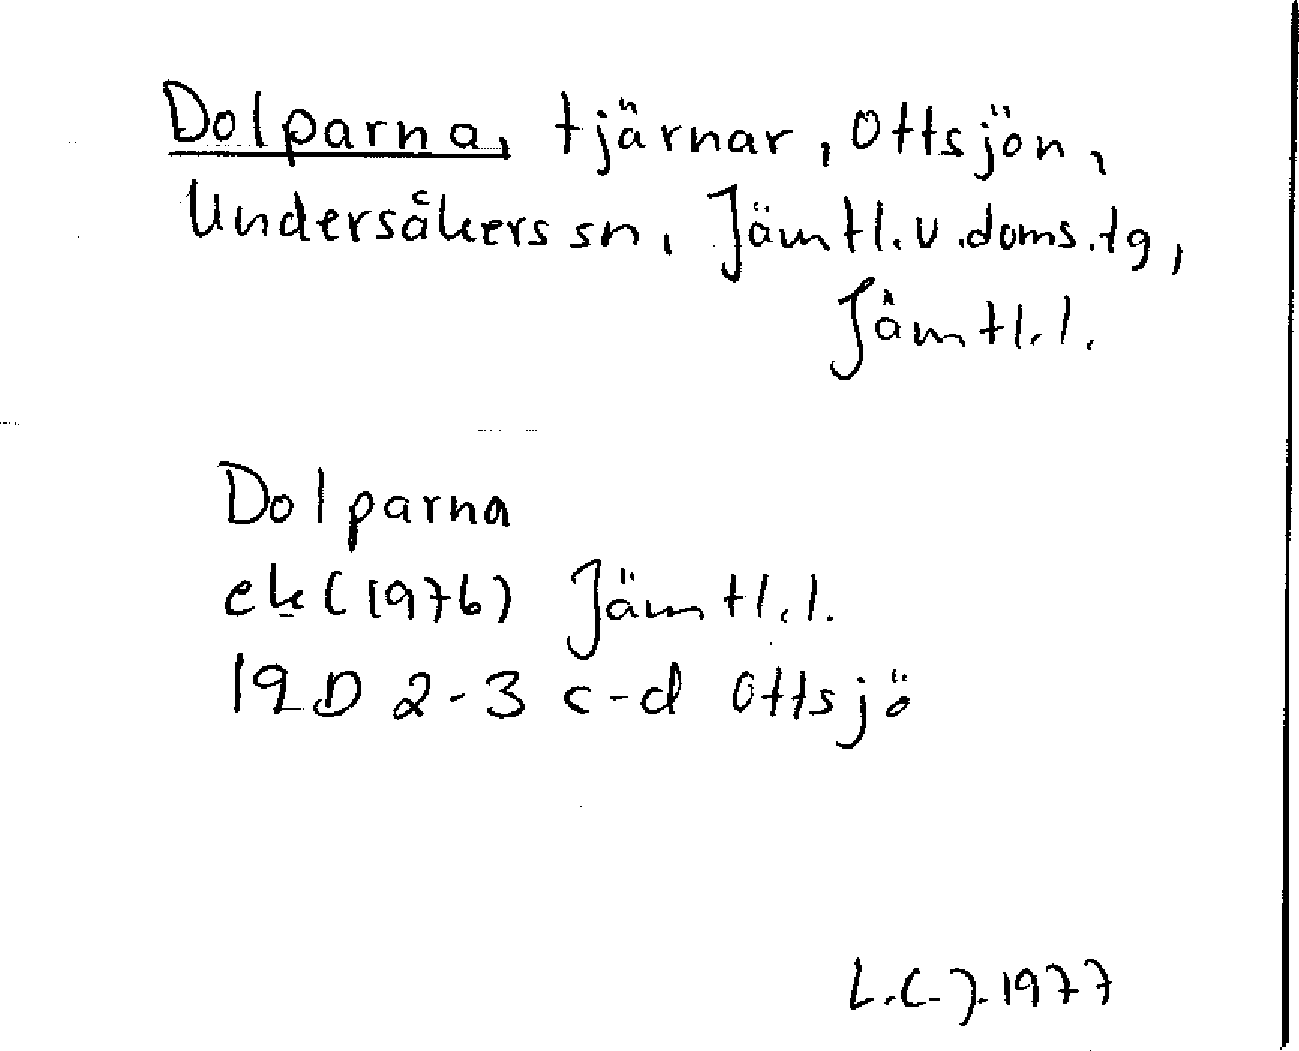 Dolparna, tjärnar, Ottsjön,
Undersåkers sn, Jämtl.v.doms.tg,
Jämtl.l.
Dolparna
ek (1976) Jämtl.l.
19D 2-3 c-d Ottsjö
L.C.J. 1977